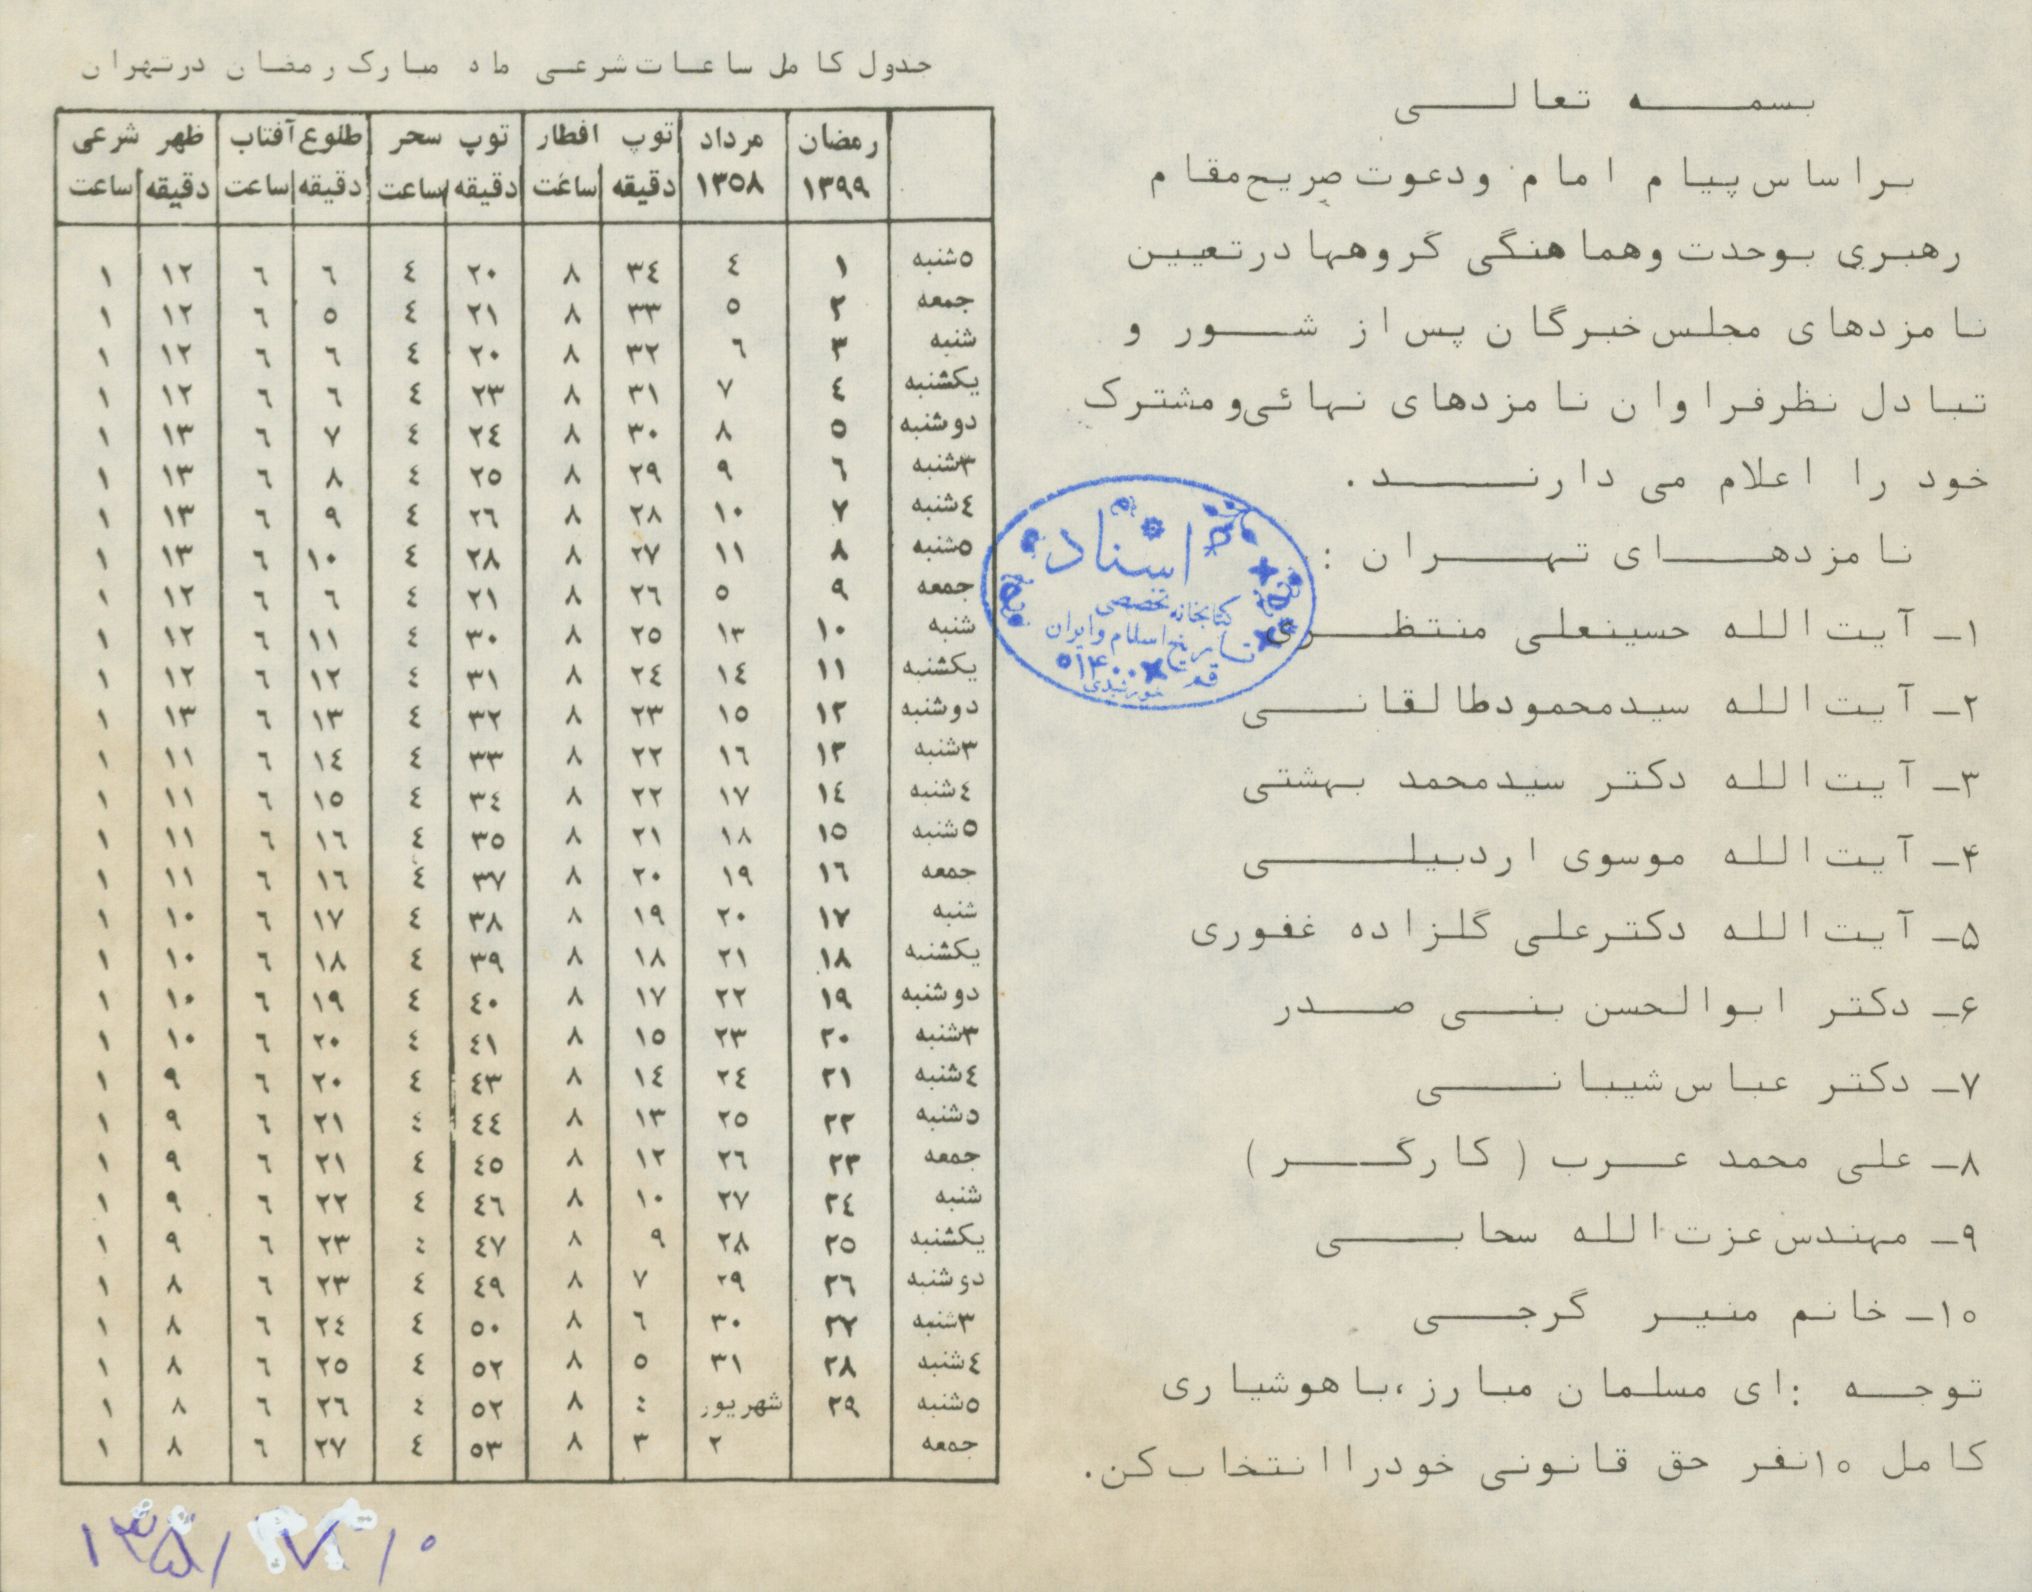 بسمه تعالی
براساس پیام امام ودعوت صریح مقام
رهبری بوحدت وهماهنگی گروهها درتعیین
نامزدهای مجلس خبرگان پس از شور و
تبادل نظرفراوان نامزدهای نهائی و مشترک
خود را اعلام می دارند.
نامزدهای تهران :
۱ـ آیت الله حسینعلی منتظری
۲ـ آیت الله سیدمحمودطالقانی
۳ـ آیت الله دکتر سیدمحمد بهشتی
۴ـ آیت الله موسوی اردبیلی
۵ـ آیت الله دکترعلی گلزاده غفوری
۶ـ دکتر ابوالحسن بنی صدر
۷ـ دکتر عباس شیبانی
۸ـ علی محمد عرب ( کارگر )
۹ـ مهندس عزت الله سحابی
۱۰ـ خانم منیر گرجی
توجه :ای مسلمان مبارز،باهوشیاری
کامل ۱۰نفر حق قانونی خودراانتخاب کن.
اسناد
کتابخانه تخصصی
تاریخ اسلام و ایران
قم ۱۴۰۰
خورشیدی
جدول کامل ساعات شرعی ماه مبارک رمضان درتهران
رمضان مرداد توپ افطار توپ سحر طلوع آفتاب ظهر شرعی
۱۳۹۹ ۱۳۵۸ دقیقه ساعت دقیقه ساعت دقیقه ساعت دقیقه ساعت
۵شنبه ۱ ٤ ۳٤ ۸ ۲۰ ٤ ٦ ٦ ۱۲ ۱
جمعه ۲ ۵ ۳۳ ۸ ۲۱ ٤ ۵ ٦ ۱۲ ۱
شنبه ۳ ٦ ۳۲ ۸ ۲۰ ٤ ٦ ٦ ۱۲ ۱
یکشنبه ٤ ۷ ۳۱ ۸ ۲۳ ٤ ٦ ٦ ۱۲ ۱
دوشنبه ۵ ۸ ۳۰ ۸ ۲٤ ٤ ۷ ٦ ۱۳ ۱
۳شنبه ٦ ۹ ۲۹ ۸ ۲۵ ٤ ۸ ٦ ۱۳ ۱
٤شنبه ۷ ۱۰ ۲۸ ۸ ۲٦ ٤ ۹ ٦ ۱۳ ۱
۵شنبه ۸ ۱۱ ۲۷ ۸ ۲۸ ٤ ۱۰ ٦ ۱۳ ۱
جمعه ۹ ۵ ۲٦ ۸ ۲۱ ٤ ٦ ٦ ۱۲ ۱
شنبه ۱۰ ۱۳ ۲۵ ۸ ۳۰ ٤ ۱۱ ٦ ۱۲ ۱
یکشنبه ۱۱ ۱٤ ۲٤ ۸ ۳۱ ٤ ۱۲ ٦ ۱۲ ۱
دوشنبه ۱۲ ۱۵ ۲۳ ۸ ۳۲ ٤ ۱۳ ٦ ۱۳ ۱
۳شنبه ۱۳ ۱٦ ۲۲ ۸ ۳۳ ٤ ۱٤ ٦ ۱۱ ۱
٤شنبه ۱٤ ۱۷ ۲۲ ۸ ۳٤ ٤ ۱۵ ٦ ۱۱ ۱
۵شنبه ۱۵ ۱۸ ۲۱ ۸ ۳۵ ٤ ۱٦ ٦ ۱۱ ۱
جمعه ۱٦ ۱۹ ۲۰ ۸ ۳۷ ٤ ۱٦ ٦ ۱۱ ۱
شنبه ۱۷ ۲۰ ۱۹ ۸ ۳۸ ٤ ۱۷ ٦ ۱۰ ۱
یکشنبه ۱۸ ۲۱ ۱۸ ۸ ۳۹ ٤ ۱۸ ٦ ۱۰ ۱
دوشنبه ۱۹ ۲۲ ۱۷ ۸ ٤۰ ٤ ۱۹ ٦ ۱۰ ۱
۳شنبه ۲۰ ۲۳ ۱۵ ۸ ٤۱ ٤ ۲۰ ٦ ۱۰ ۱
٤شنبه ۲۱ ۲٤ ۱٤ ۸ ٤۳ ٤ ۲۰ ٦ ۹ ۱
۵شنبه ۲۲ ۲۵ ۱۳ ۸ ٤٤ ٤ ۲۱ ٦ ۹ ۱
جمعه ۲۳ ۲٦ ۱۲ ۸ ٤۵ ٤ ۲۱ ٦ ۹ ۱
شنبه ۲٤ ۲۷ ۱۰ ۸ ٤٦ ٤ ۲۲ ٦ ۹ ۱
یکشنبه ۲۵ ۲۸ ۹ ۸ ٤۷ ٤ ۲۳ ٦ ۹ ۱
دوشنبه ۲٦ ۲۹ ۷ ۸ ٤۹ ٤ ۲۳ ٦ ۸ ۱
۳شنبه ۲۷ ۳۰ ٦ ۸ ۵۰ ٤ ۲٤ ٦ ۸ ۱
٤شنبه ۲۸ ۳۱ ۵ ۸ ۵۲ ٤ ۲۵ ٦ ۸ ۱
۵شنبه ۲۹ شهریور ٤ ۸ ۵۲ ٤ ۲٦ ٦ ۸ ۱
جمعه ۲ ۳ ۸ ۵۳ ٤ ۲۷ ٦ ۸ ۱